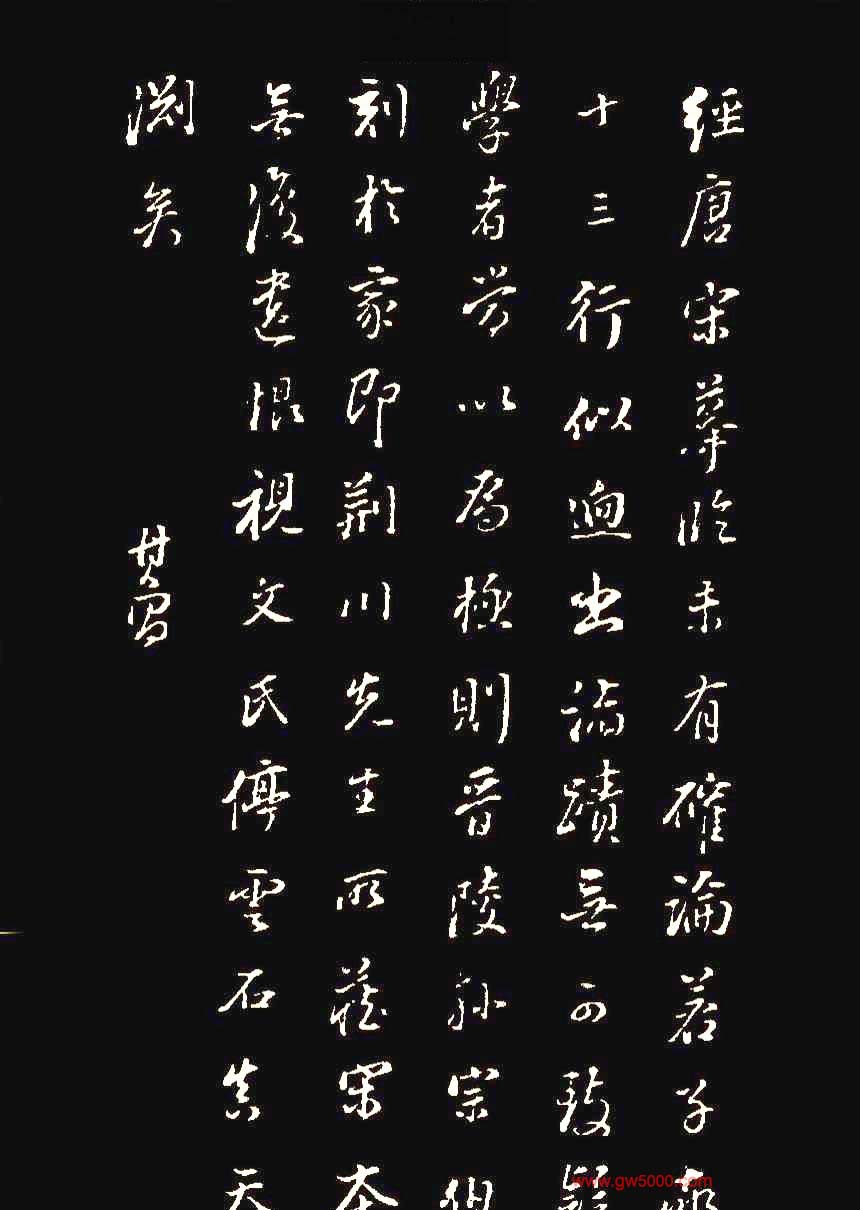 經唐宋摹臨未有確論若子敬
十三行似迥出諸蹟無可致疑
學者當以爲極則晉陵孫宗伯
刻於家即荊川先生所藏宋本
無復遺恨視文氏停雲石真天
淵矣
其昌
www.gw5000.com